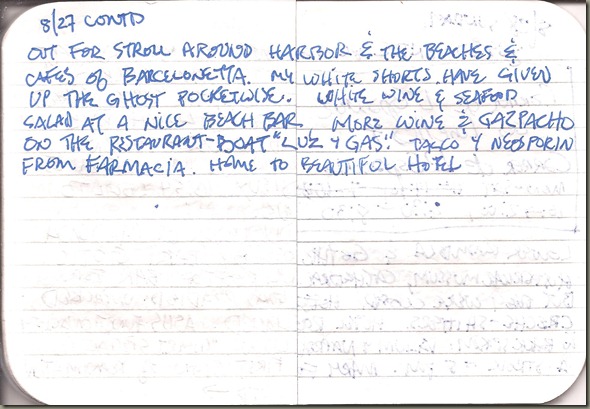 8/27 CONTD
OUT FOR STROLL AROUND HARBOR & THE BEACHES &
CAFES OF BARCELONETTA. MY WHITE SHORTS HAVE GIVEN
UP THE GHOST POCKETWISE. WHITE WINE & SEAFOOD
SALAD AT A NICE BEACH BAR. MORE WINE & GAZPACHO
ON THE RESTAURANT-BOAT "LUZ Y GAS." TAXCO Y NEOSPORIN
FROM FARMACIA. HOME TO BEAUTIFUL HOTEL